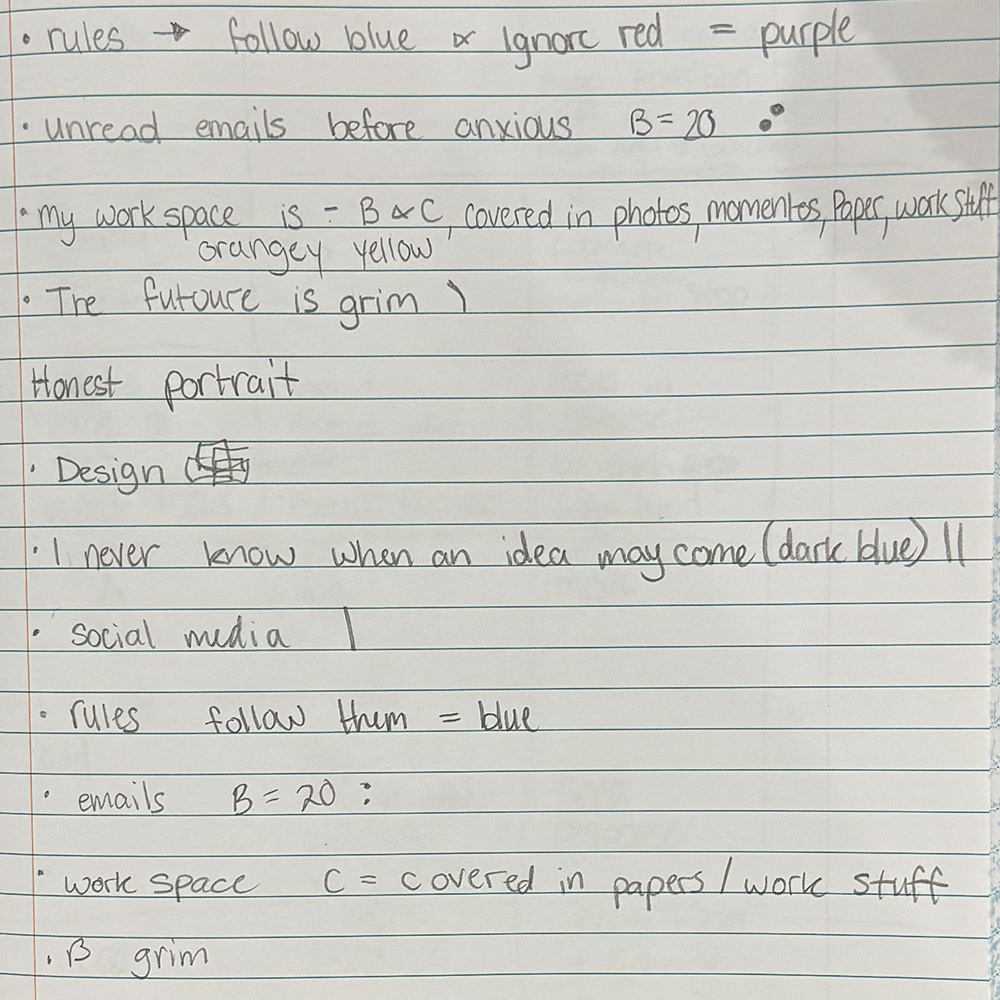 • rules → follow blue & Ignore red = purple
• unread emails before anxious B = 20 :
• My work space is - B & C, covered in photos, momentos, Paper, work stuff
orangey yellow
• The futoure is grim )
Honest portrait
• Design
• I never know when an idea may come (dark blue) ||
• social media |
• rules follow them = blue
• emails B = 20 :
• work space C = covered in papers / work stuff
• B grim